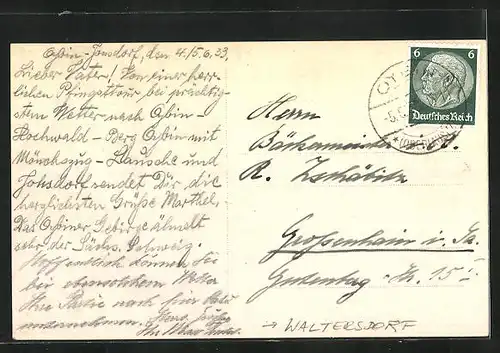 Oybin-Jonsdorf, den 4./5.6.33.
Lieber Vater! Von einer herr-
lichen Pfingsttour bei prächtig-
stem Wetter nach Oybin-
Hochwald - Berg Oybin mit
Mönchszug - Lausche und
Johsdorf sendet Dir die
herzlichsten Grüße Marthel.
Das Oybiner Gebirge ähnelt
sehr der Sächs. Schweiz.
Hoffentlich können Sie
bei ebensolchem Wetter
Ihre Partie nach
unternehmen.
6 6
Deutsches Reich
Herrn
Bäckermeister
R. Zschäbitz
Großenhain i. Sa.
→ WALTERSDORF